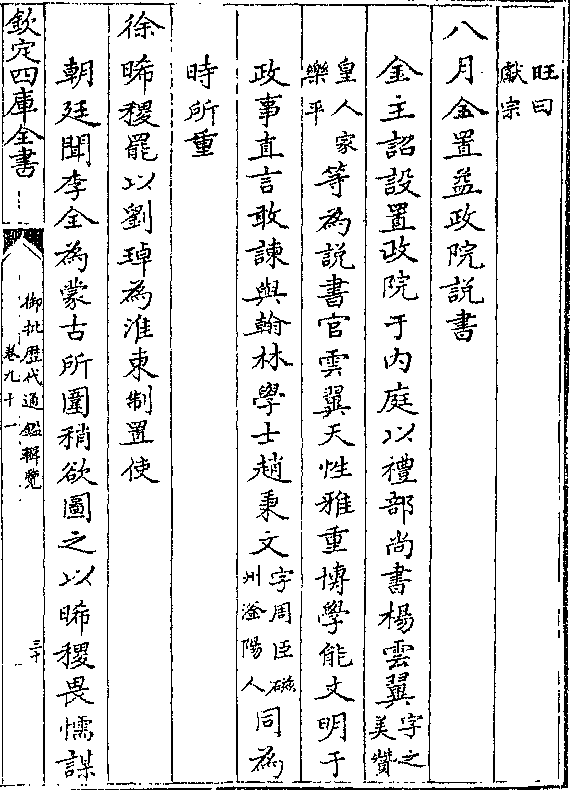 旺曰
獻宗
八月金置益政院說書
金主詔設置政院于内庭以禮部尚書楊雲翼字之美贊
皇人家樂平等為說書官雲翼天性雅重博學能文明于
政事直言敢諫與翰林學士趙秉文字周臣磁州滏陽人同為
時所重
徐晞稷罷以劉琸為淮東制置使
朝廷聞李全為蒙古所圍稍欲圖之以晞稷畏懦謀
欽定四庫全書
御批歷代通鑑輯覽
卷九十一
三十